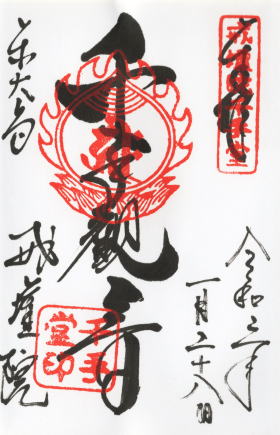 奉拝
令和三年
一月二十八日
千手觀音
千手
堂印
東大寺
戒壇院